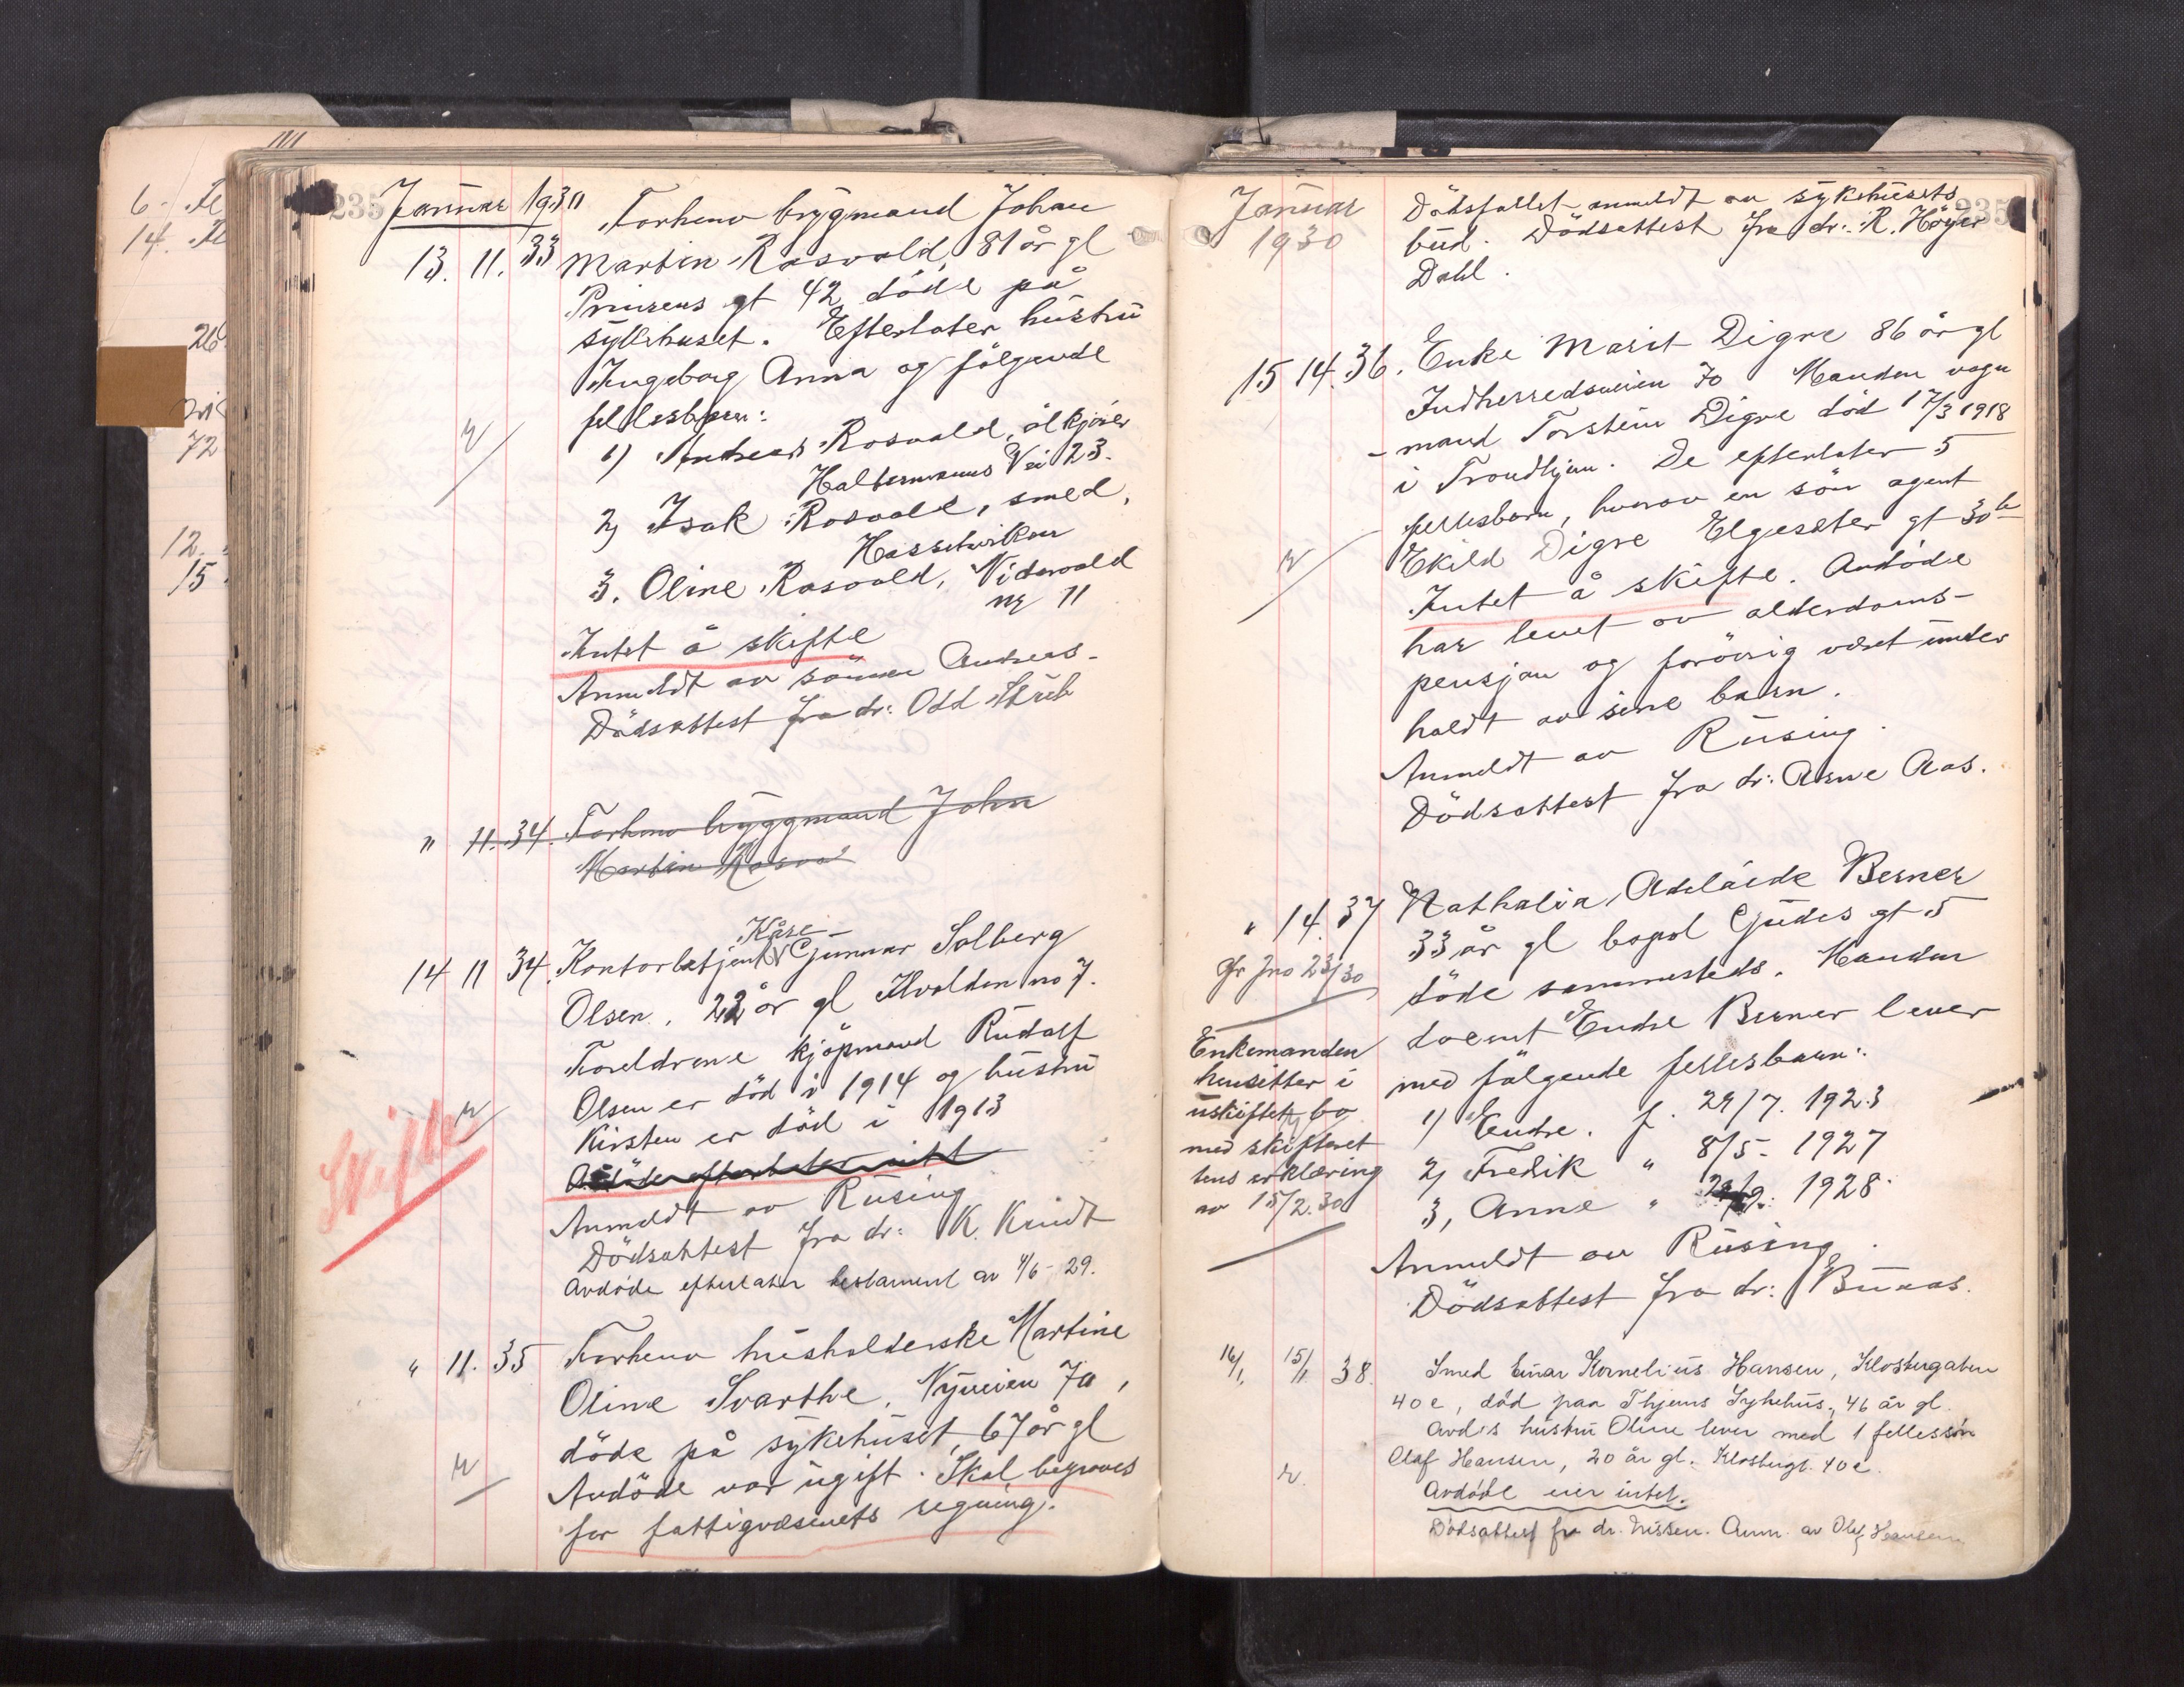 235 Januar 1930
13. 11. 33 Forhenv brygmand Johan
Martin Rosvold, 81 år gl
Prinsens gt 42 döde på
sykehuset. Efterlater hustru
Ingeborg Anna og følgende
fellesbarn:
1) Andreas Rosvold, ølkjører
Haltermanns Vei 23.
2) Isak Rosvold, smed,
Hasselvikan
3. Oline Rosvold, Nidarvold
nr 11
Intet å skifte
Anmeldt av sønnen Andreas
Dödsattest fra dr: Odd
" 11. 34. Forhenv bryggmand John
Martin Rosvo
Kåre
14 11 34. Kontorbetjent Gunnar Solberg
Olsen. 22 år gl Ilvolden no 7.
Foreldrene kjöpmand Rudolf
Olsen er död i 1914 og hustru
Kirsten er död i 1913
Avdöde efterlater intet
Skifte
Anmeldt av Rusing
Dödsattest fra dr: K. Kindt
Avdöde efterlater testament av 4/6-29.
" 11. 35 Forhenv husholderske Martine
Oline Svarthe, Nyveien 7a,
döde på sykehuset, 67 år gl
Avdöde var ugift. Skal begraves
for fattigvæsenets regning.
Januar
1930
235
Dödsfallet anmeldt av sykehusets
bud. Dödsattest fra dr: R. Höyer
Dahl.
15 14. 36. Enke Marit Digre 86 år gl
Indherredsveien 70 Manden vogn
-mand Torstein Digre död 17/3 1918
i Trondhjem. De efterlater 5
fellesbarn, hvorav en sön agent
Ekild Digre Elgeseter gt 30b
Intet å skifte. Avdöde
har levet av alderdoms-
pensjon og forövrig været under
holdt av sine barn.
Anmeldt av Rusing.
Dödsattest fra dr: Arne Aas.
" 14. 37 Nathalia Adelaide Berner
33 år gl bopel Gudes gt 5
döde sammesteds. Manden
docent Endre Berner lever
med fölgende fellesbarn:
1) Endre. f. 29/7. 1923
2) Fredik " 8/5- 1927
3, Anne " 1928.
Anmeldt av Rusing.
Dödsattest fra dr: Buaas.
Jfr jno 23/30
Enkemanden
hensitter i
uskiftet bo
med skifteret
tens erklæring
av 15/2.30
16/1 15/1 38. Smed Einar Kornelius Hansen, Klostergaten
40c, död paa Thjems Sykehus, 46 år gl.
Avd's hustru Oline lever med 1 fellessön
Olaf Hansen, 20 år gl. Klostergt. 40c.
Avdöde eier intet.
Dödsattest fra dr. Nissen. Anm. av Olaf Hansen
6-
14.
26
72
12.
15